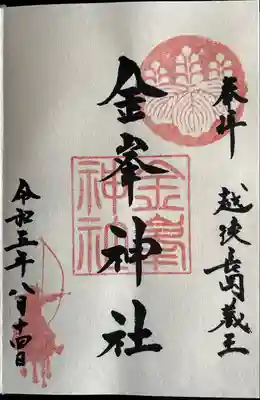 奉拝
越後長岡蔵王
金峯神社
金峯神社
令和五年八月十四日